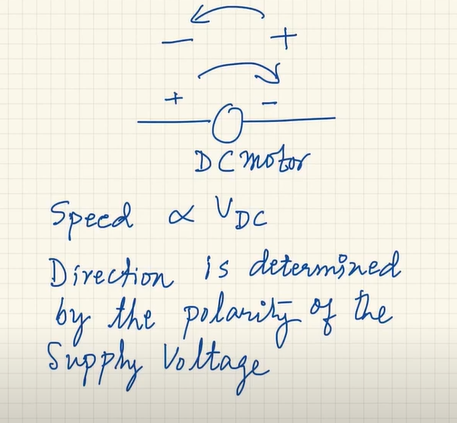 − +
+ −
DC motor
Speed ∝ VDC
Direction is determined
by the polarity of the
Supply Voltage